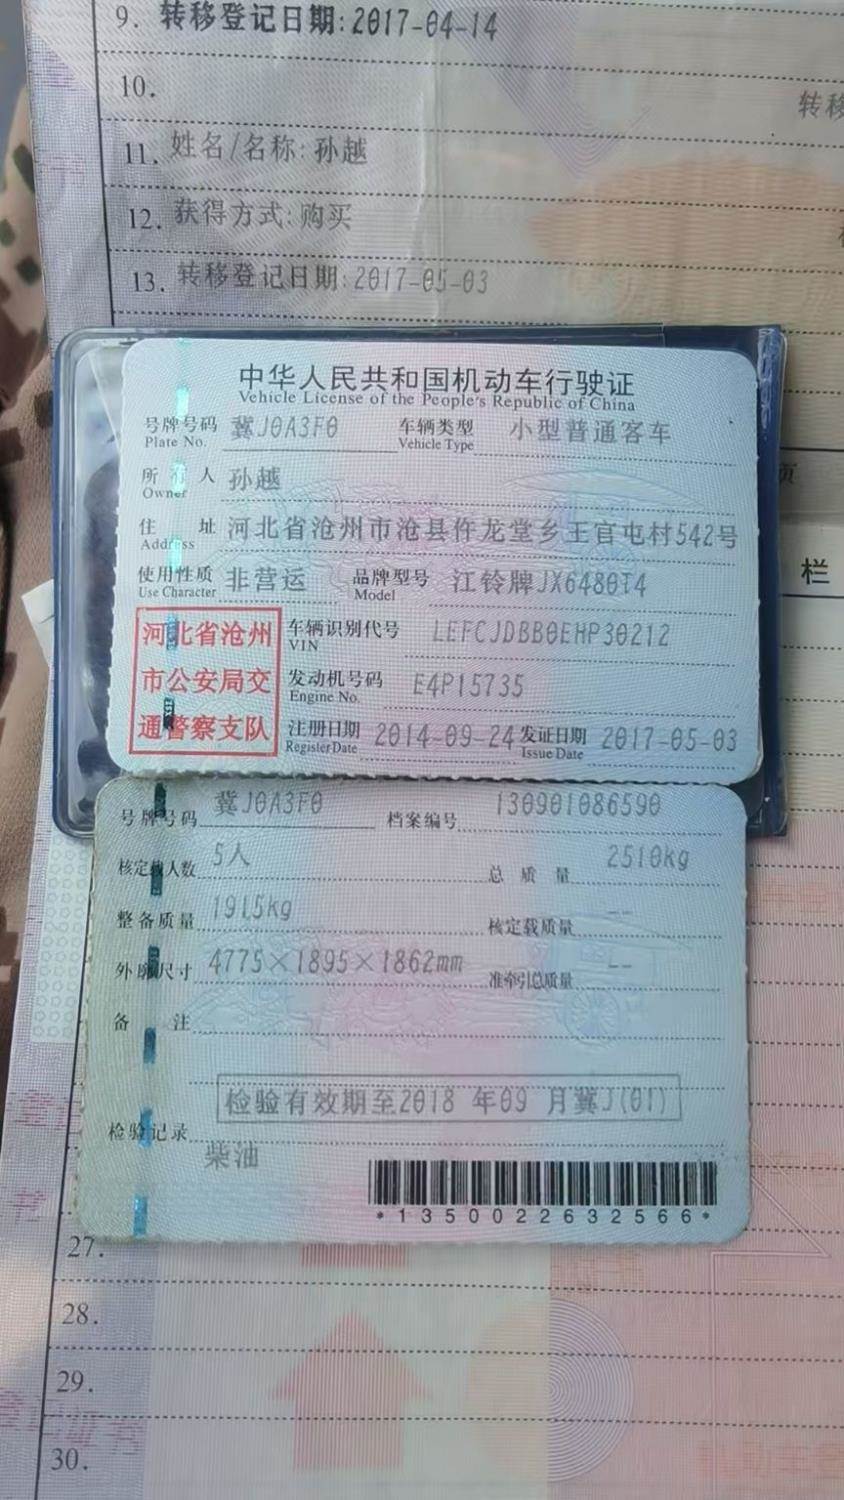 9. 转移登记日期:2017-04-14
10.
转移
11. 姓名/名称: 孙越
12. 获得方式: 购买
13. 转移登记日期:2017-05-03
中华人民共和国机动车行驶证
Vehicle License of the People's Republic of China
号牌号码 冀J0A3F0 车辆类型 小型普通客车
Plate No. Vehicle Type
所有人 孙越
Owner
住址 河北省沧州市沧县仵龙堂乡王官屯村542号
Address
使用性质 非营运 品牌型号 江铃牌JX6480T4
Use Character Model
河北省沧州
市公安局交
通警察支队
车辆识别代号 LEFCJDBB0EHP30212
VIN
发动机号码 E4P15735
Engine No.
注册日期 2014-09-24 发证日期 2017-05-03
Register Date Issue Date
栏
号牌号码 冀J0A3F0 档案编号 130901086590
核定载人数 5人 总质量 2510kg
整备质量 1915kg 核定载质量 --
外廓尺寸 4775×1895×1862mm 准牵引总质量 --
备注
检验有效期至2018 年09 月冀J(01)
检验记录
柴油
*1350022632566*
27.
28.
29.
30.